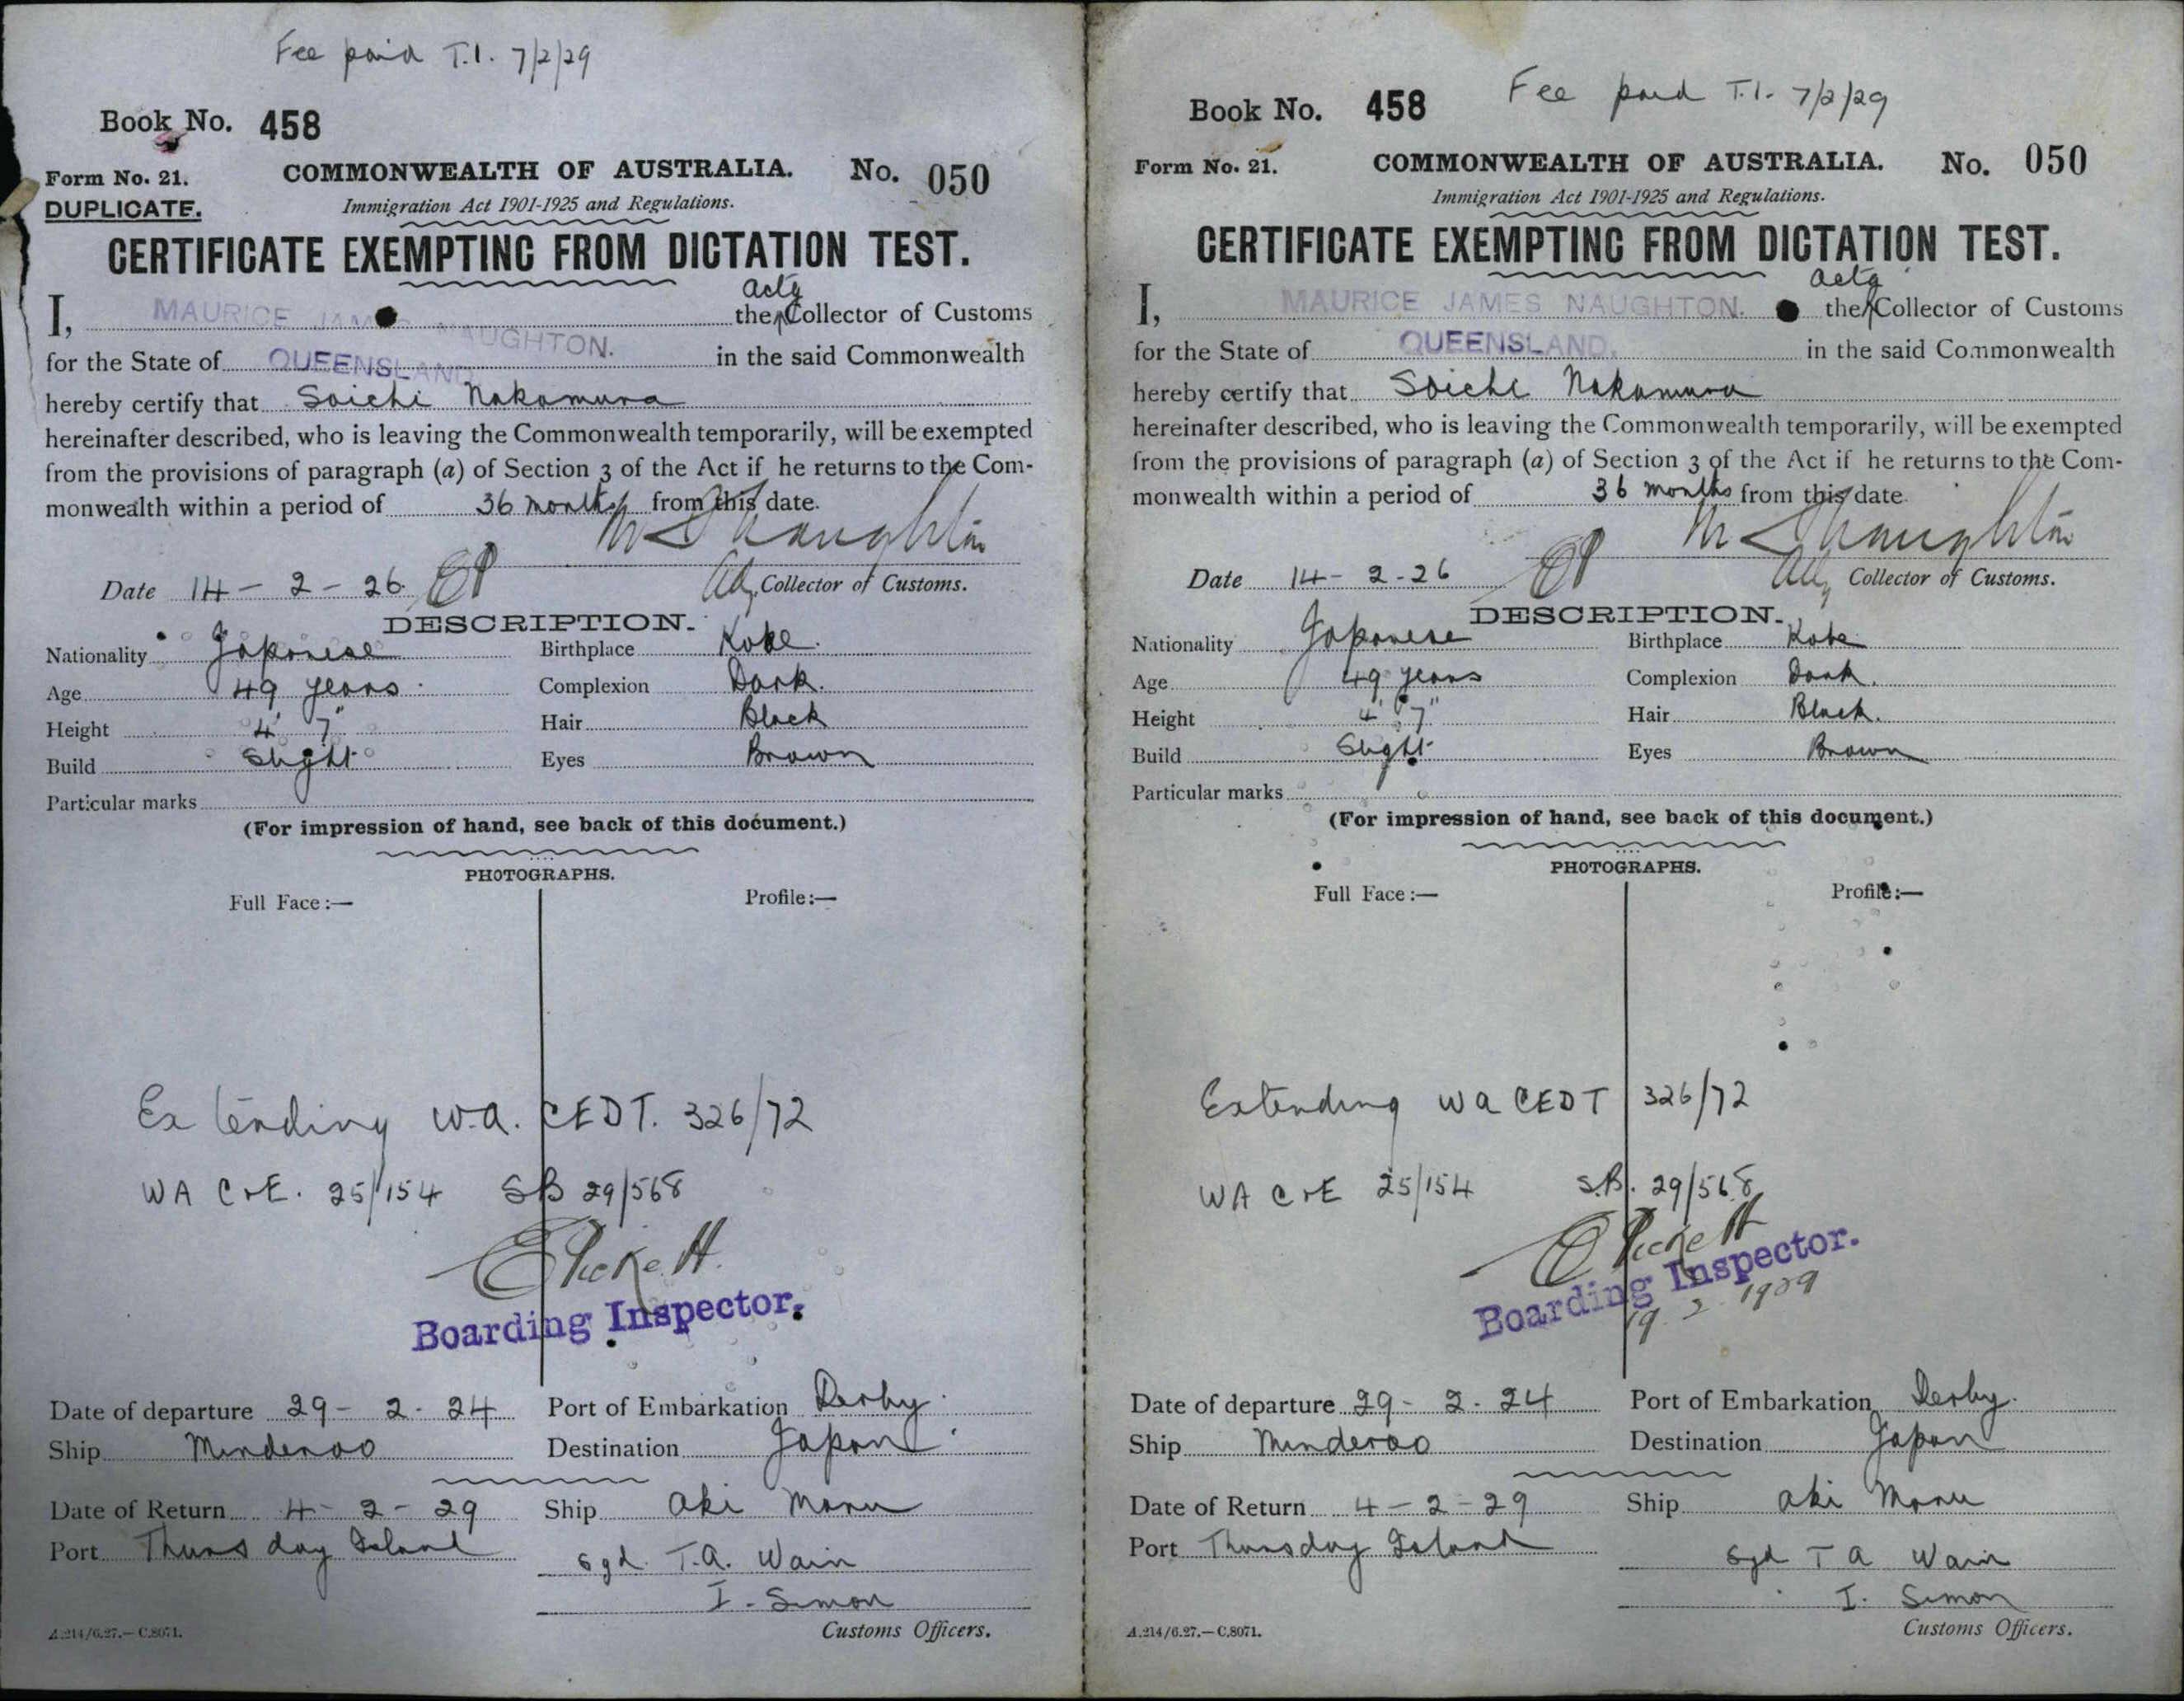 Fee paid T.I. 7/2/29
Book No. 458
Form No. 21.
COMMONWEALTH OF AUSTRALIA.
No. 050
DUPLICATE.
Immigration Act 1901-1925 and Regulations.
CERTIFICATE EXEMPTING FROM DICTATION TEST.
actg
I, MAURICE JAMES NAUGHTON. the Collector of Customs
for the State of QUEENSLAND in the said Commonwealth
hereby certify that Soichi Nakamura
hereinafter described, who is leaving the Commonwealth temporarily, will be exempted
from the provisions of paragraph (a) of Section 3 of the Act if he returns to the Com-
monwealth within a period of 36 months from this date.
M J Naughton
Date 14 - 2 - 26. Actg Collector of Customs.
DESCRIPTION.
Nationality Japanese Birthplace Kobe.
Age 49 years. Complexion Dark.
Height 4' 7" Hair Black
Build Slight Eyes Brown
Particular marks
(For impression of hand, see back of this document.)
PHOTOGRAPHS.
Full Face:— Profile:—
Extending W.A. CEDT. 326/72
WA C&E. 25/154 SB 29/568
E Pickett.
Boarding Inspector.
Date of departure 29 - 2 - 24 Port of Embarkation Derby.
Ship Minderoo Destination Japan.
Date of Return 4 - 2 - 29 Ship Aki Maru
Port Thursday Island
sgd. T.A. Wain
I. Simon
Customs Officers.
A.214/6.27.—C.8071.
Book No. 458
Fee paid T.I. 7/2/29
Form No. 21.
COMMONWEALTH OF AUSTRALIA.
No. 050
Immigration Act 1901-1925 and Regulations.
CERTIFICATE EXEMPTING FROM DICTATION TEST.
actg
I, MAURICE JAMES NAUGHTON. the Collector of Customs
for the State of QUEENSLAND. in the said Commonwealth
hereby certify that Soichi Nakamura
hereinafter described, who is leaving the Commonwealth temporarily, will be exempted
from the provisions of paragraph (a) of Section 3 of the Act if he returns to the Com-
monwealth within a period of 36 months from this date
M J Naughton
Date 14 - 2 - 26 Actg Collector of Customs.
DESCRIPTION.
Nationality Japanese Birthplace Kobe
Age 49 years Complexion Dark.
Height 4' 7" Hair Black.
Build Slight Eyes Brown
Particular marks
(For impression of hand, see back of this document.)
PHOTOGRAPHS.
Full Face:— Profile:—
Extending WA CEDT 326/72
WA C&E 25/154 S.B. 29/568
E Pickett
Boarding Inspector.
19 2 1929
Date of departure 29 - 2 - 24 Port of Embarkation Derby.
Ship Minderoo Destination Japan
Date of Return 4 - 2 - 29 Ship Aki Maru
Port Thursday Island
sgd T A Wain
I. Simon
Customs Officers.
A.214/6.27.—C.8071.